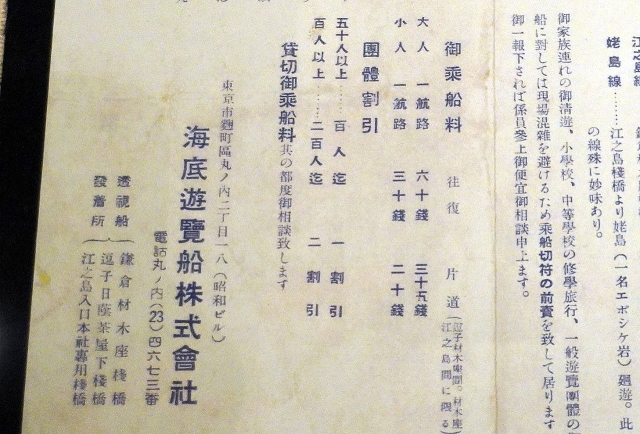 江之島線
姥島線………江之島棧橋より姥島（一名エボシケ岩）廻遊。此
の線殊に妙味あり。
御家族連れの御淸遊、小學校、中等學校の修學旅行、一般遊覽團體の
船に對しては現場混雜を避けるため乘船切符の前賣を致して居ります
御一報下されば係員參上御便宜御相談申上ます。
御乘船料 往復 片道（逗子材木座間。材木座江之島間に限る）
大人 一航路 六十錢 三十五錢
小人 一航路 三十錢 二十錢
團體割引
五十人以上……百人迄 一割引
百人以上……二百人迄 二割引
貸切御乘船料其の都度御相談致します
東京市麴町區丸ノ內二丁目一八（昭和ビル）
海底遊覽船株式會社
電話丸ノ內(23)四六七三番
透視船發着所
鎌倉材木座棧橋
逗子日蔭茶屋下棧橋
江之島入口本社專用棧橋